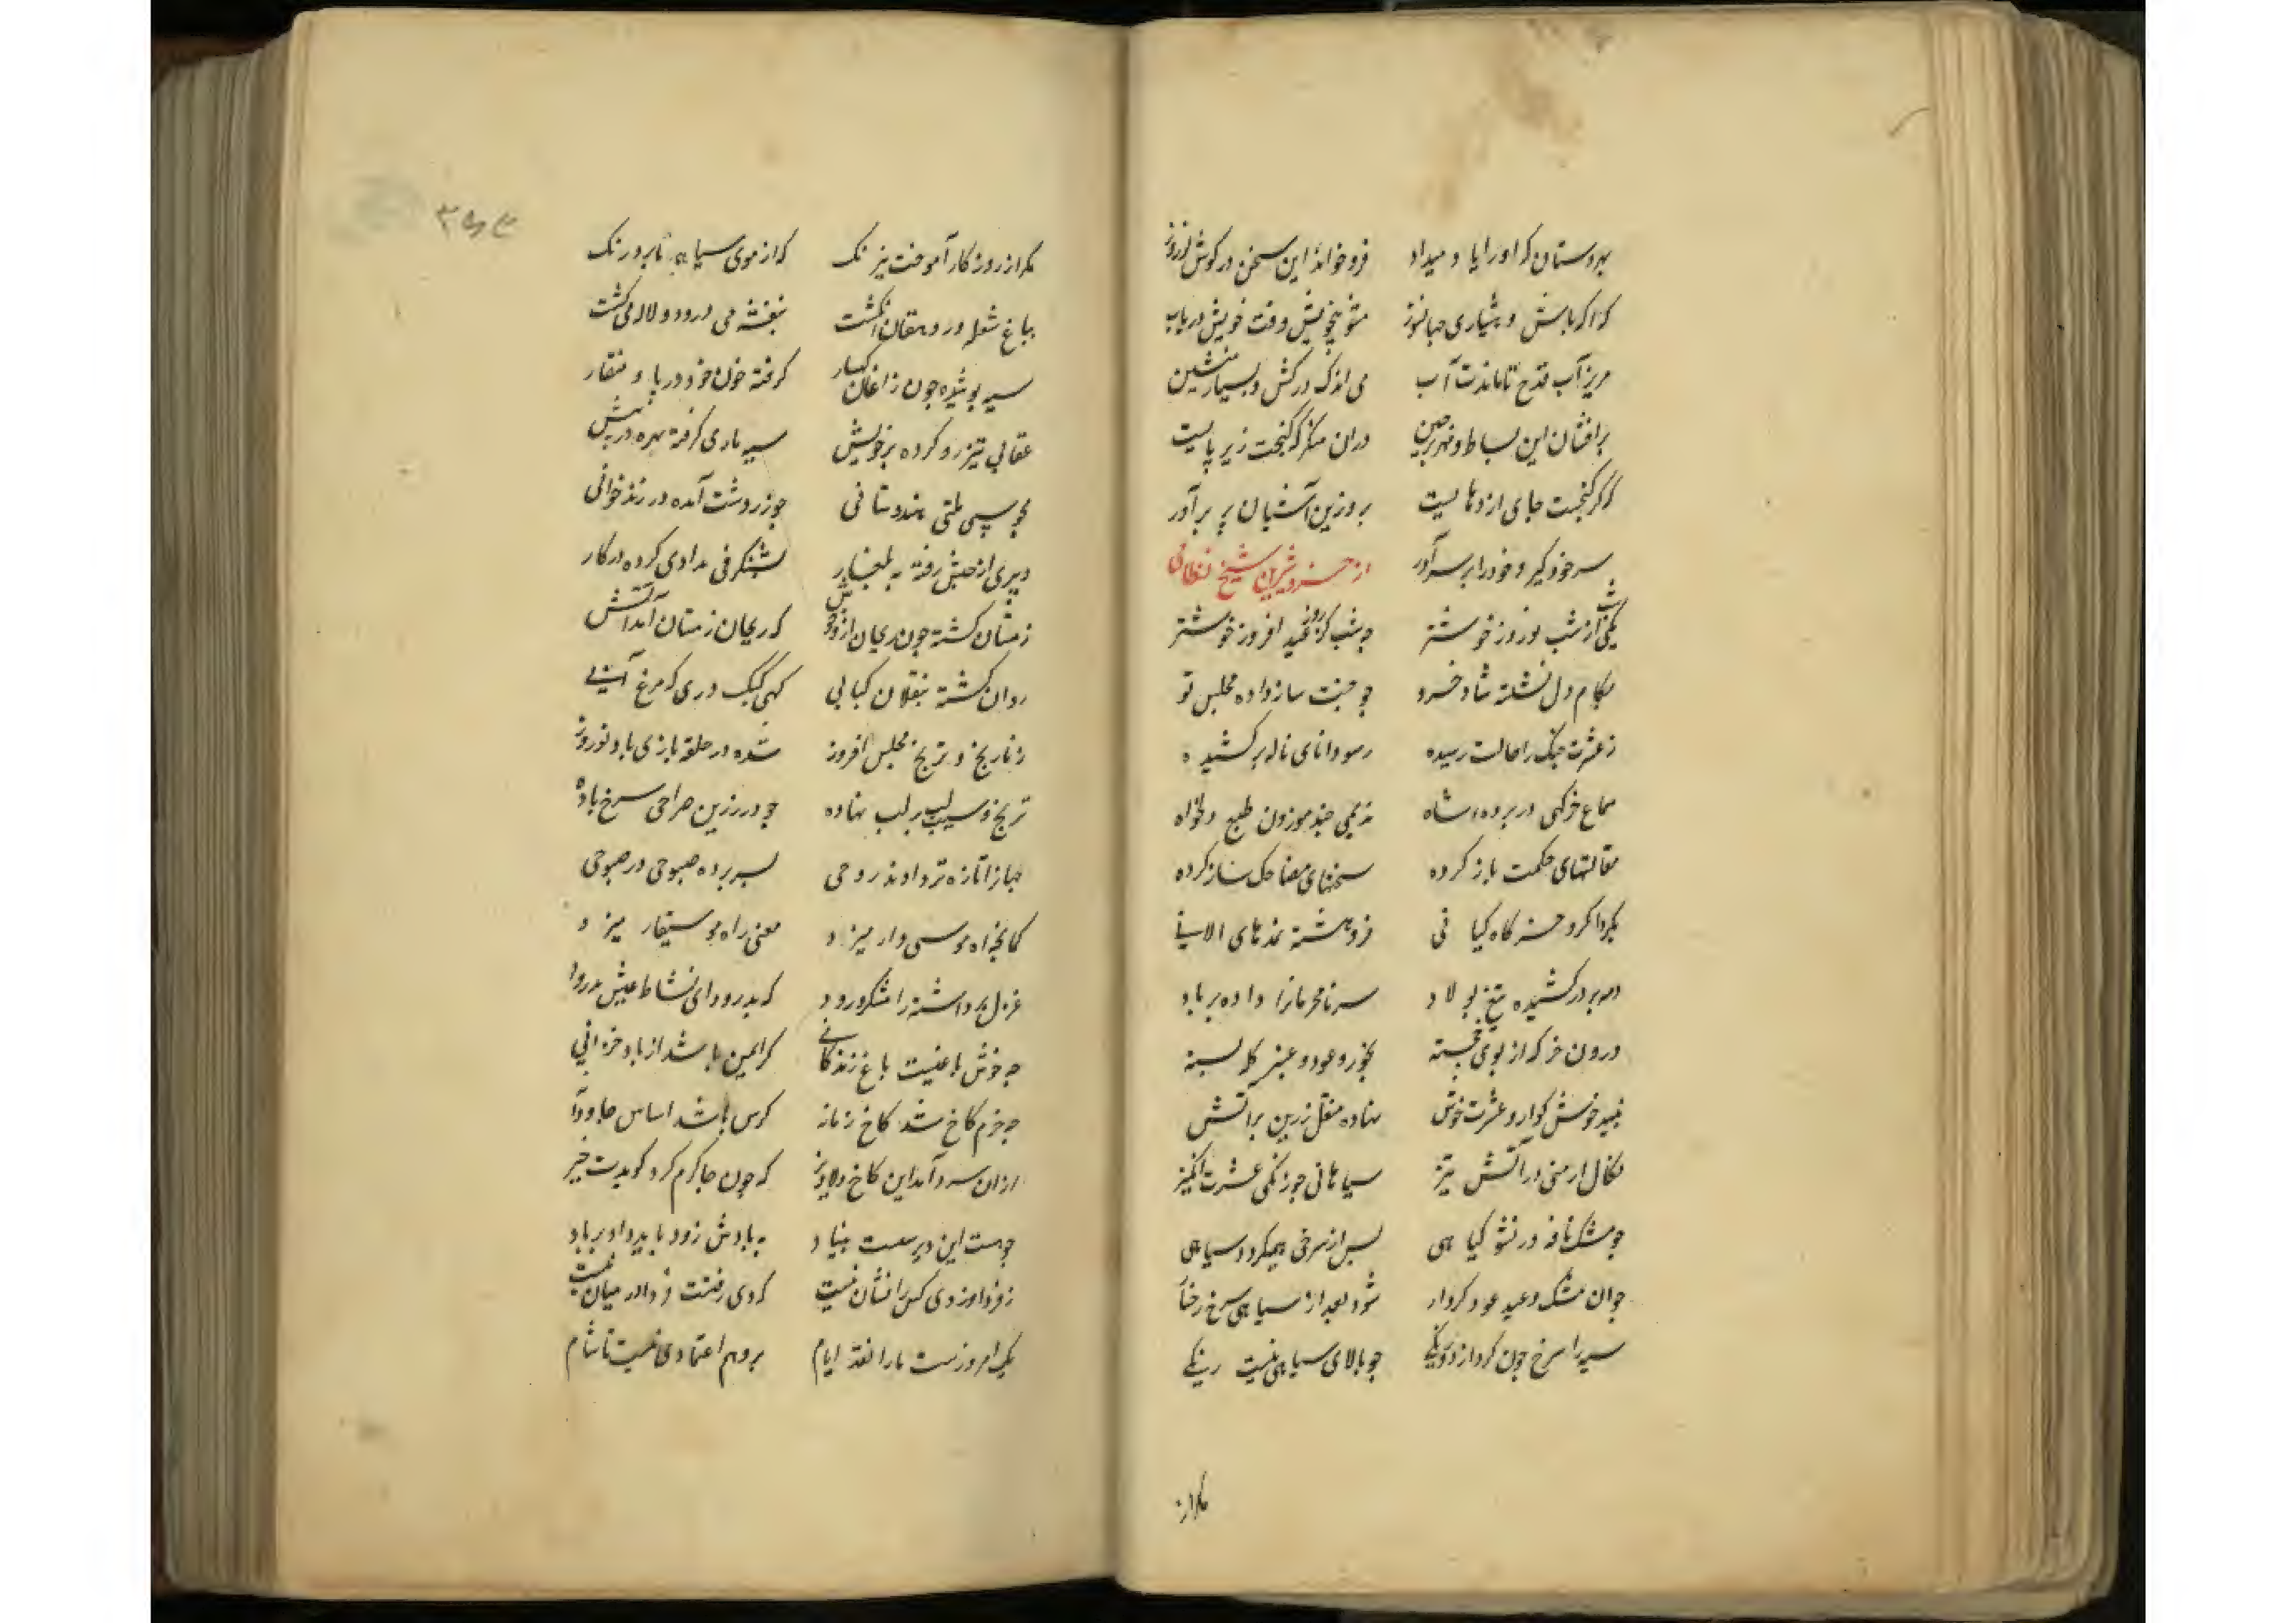 بهر دستان که او را یاد میداد فرو خواند این سخن در کوش نوروز
مشو بیخویش وقت خویش دریاب
مریز آب قدح تا ماندت آب می اندک درکش و بسیار منشین
برافشان این بساط و دران منکر که کنجت زیر پایست
که کر کنجست جای اژدهایست برو زین آشیان پر برآور
سر خود کیر و خود را بر سر آور از خسرو شیرین شیخ نظامی
یکی شب از شب نوروز خوشتر چه شب کز روز عید افروز خوشتر
بکام دل نشسته شاد خسرو چو جنت ساز داده مجلس نو
ز عشرت چنک را حالت رسیده ناله برکشیده
سماع خرکهی در پرده شاه ندیمی چند موزون طبع و دلخواه
مقالتهای حکمت باز کرده سخنهای مضاحک ساز کرده
بکرداکرد خرکاه کیانی فرو هشته نمدهای الانی
دمه بر در کشیده تیغ پولاد سر نامحرمانرا داده بر باد
درون خرکه از بوی خجسته بخور و عود و عنبر کله بسته
نبید خوش کوار و عشرت خوش نهاده منقل زرین پر آتش
زکال ارمنی در آتش تیز سیاهانی چو زنکی عشرت انکیز
چو مشک نافه در نشو کیاهی پس از سرخی همیکردد سیاهی
چو آن مشک و عود کردار شود بعد از سیاهی سرخ رخسار
سیه را سرخ چون کرد آذرنکی چو بالای سیاهی نیست رنکی
مکر از
مکر از روزکار آموخت نیرنک که از موی سیاه ما برد رنک
بباغ شعله در دهقان انکشت بنفشه می درود و لاله می کشت
سیه پوشیده چون زاغان کهسار کرفته خون خود در پا و منقار
عقابی تیز رو کرده پر خویش سیه ماری کرفته مهره در پیش
مجوسی ملتی هندوستانی چو زردشت آمده در زندخوانی
دبیری از حبش رفته به بلغار بشنکرفی مدادی کرده در کار
زمستان کشته چون ریحان ازو خوش که ریحان زمستان آمد آتش
روان کشته بنقلان کبابی کهی کبک دری که مرغ آبی
ز نارنج و ترنج مجلس افروز شده در حلقه بازی باد نوروز
ترنج و سیب لب بر لب نهاده چو در زرین صراحی سرخ باده
جهانرا تازه تر دادند روحی بسر برده صبوحی در صبوحی
کمانچه آه موسی وار میزد مغنی راه موسیقار میزد
غزل برداشته رامشکر رود که بدرود ای نشاط عیش بدرود
چه خوش باغیست باغ زندکانی کر ایمن باشد از باد خزانی
چه خرم کاخ شد کاخ زمانه کرش باشد اساس جاودانه
ازان سرد آمد این کاخ دلاویز که چون جا کرم کردی کویدت خیز
چو هست این دیر سست بنیاد به بادش زود باید داد بر باد
ز فردا وز دی کس را نشان نیست که دی رفتست و فردا در میان نیست
یک امروزست ما را نقد ایام برو هم اعتمادی نیست تا شام